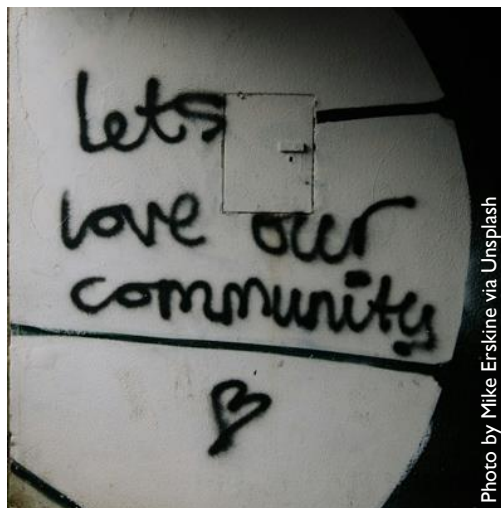 lets
love our
community
Photo by Mike Erskine via Unsplash